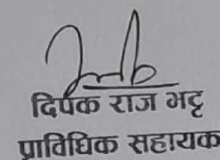 दिपक राज भट्ट
प्राविधिक सहायक